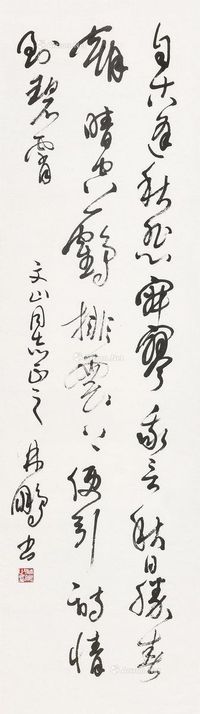 自古逢秋悲寂寥我言秋日胜春
朝晴空一鹤排云上便引诗情
到碧霄
文山同志正之
林鹏书